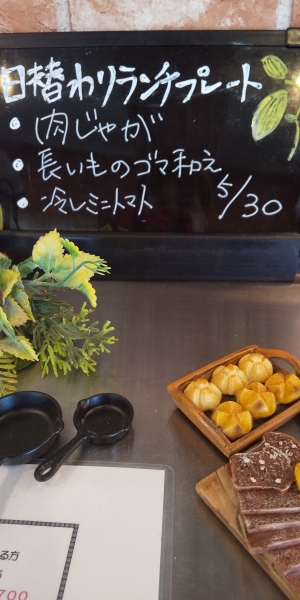 日替わりランチプレート
・肉じゃが
・長いものゴマ和え
・冷しミニトマト
5/30
る方
700